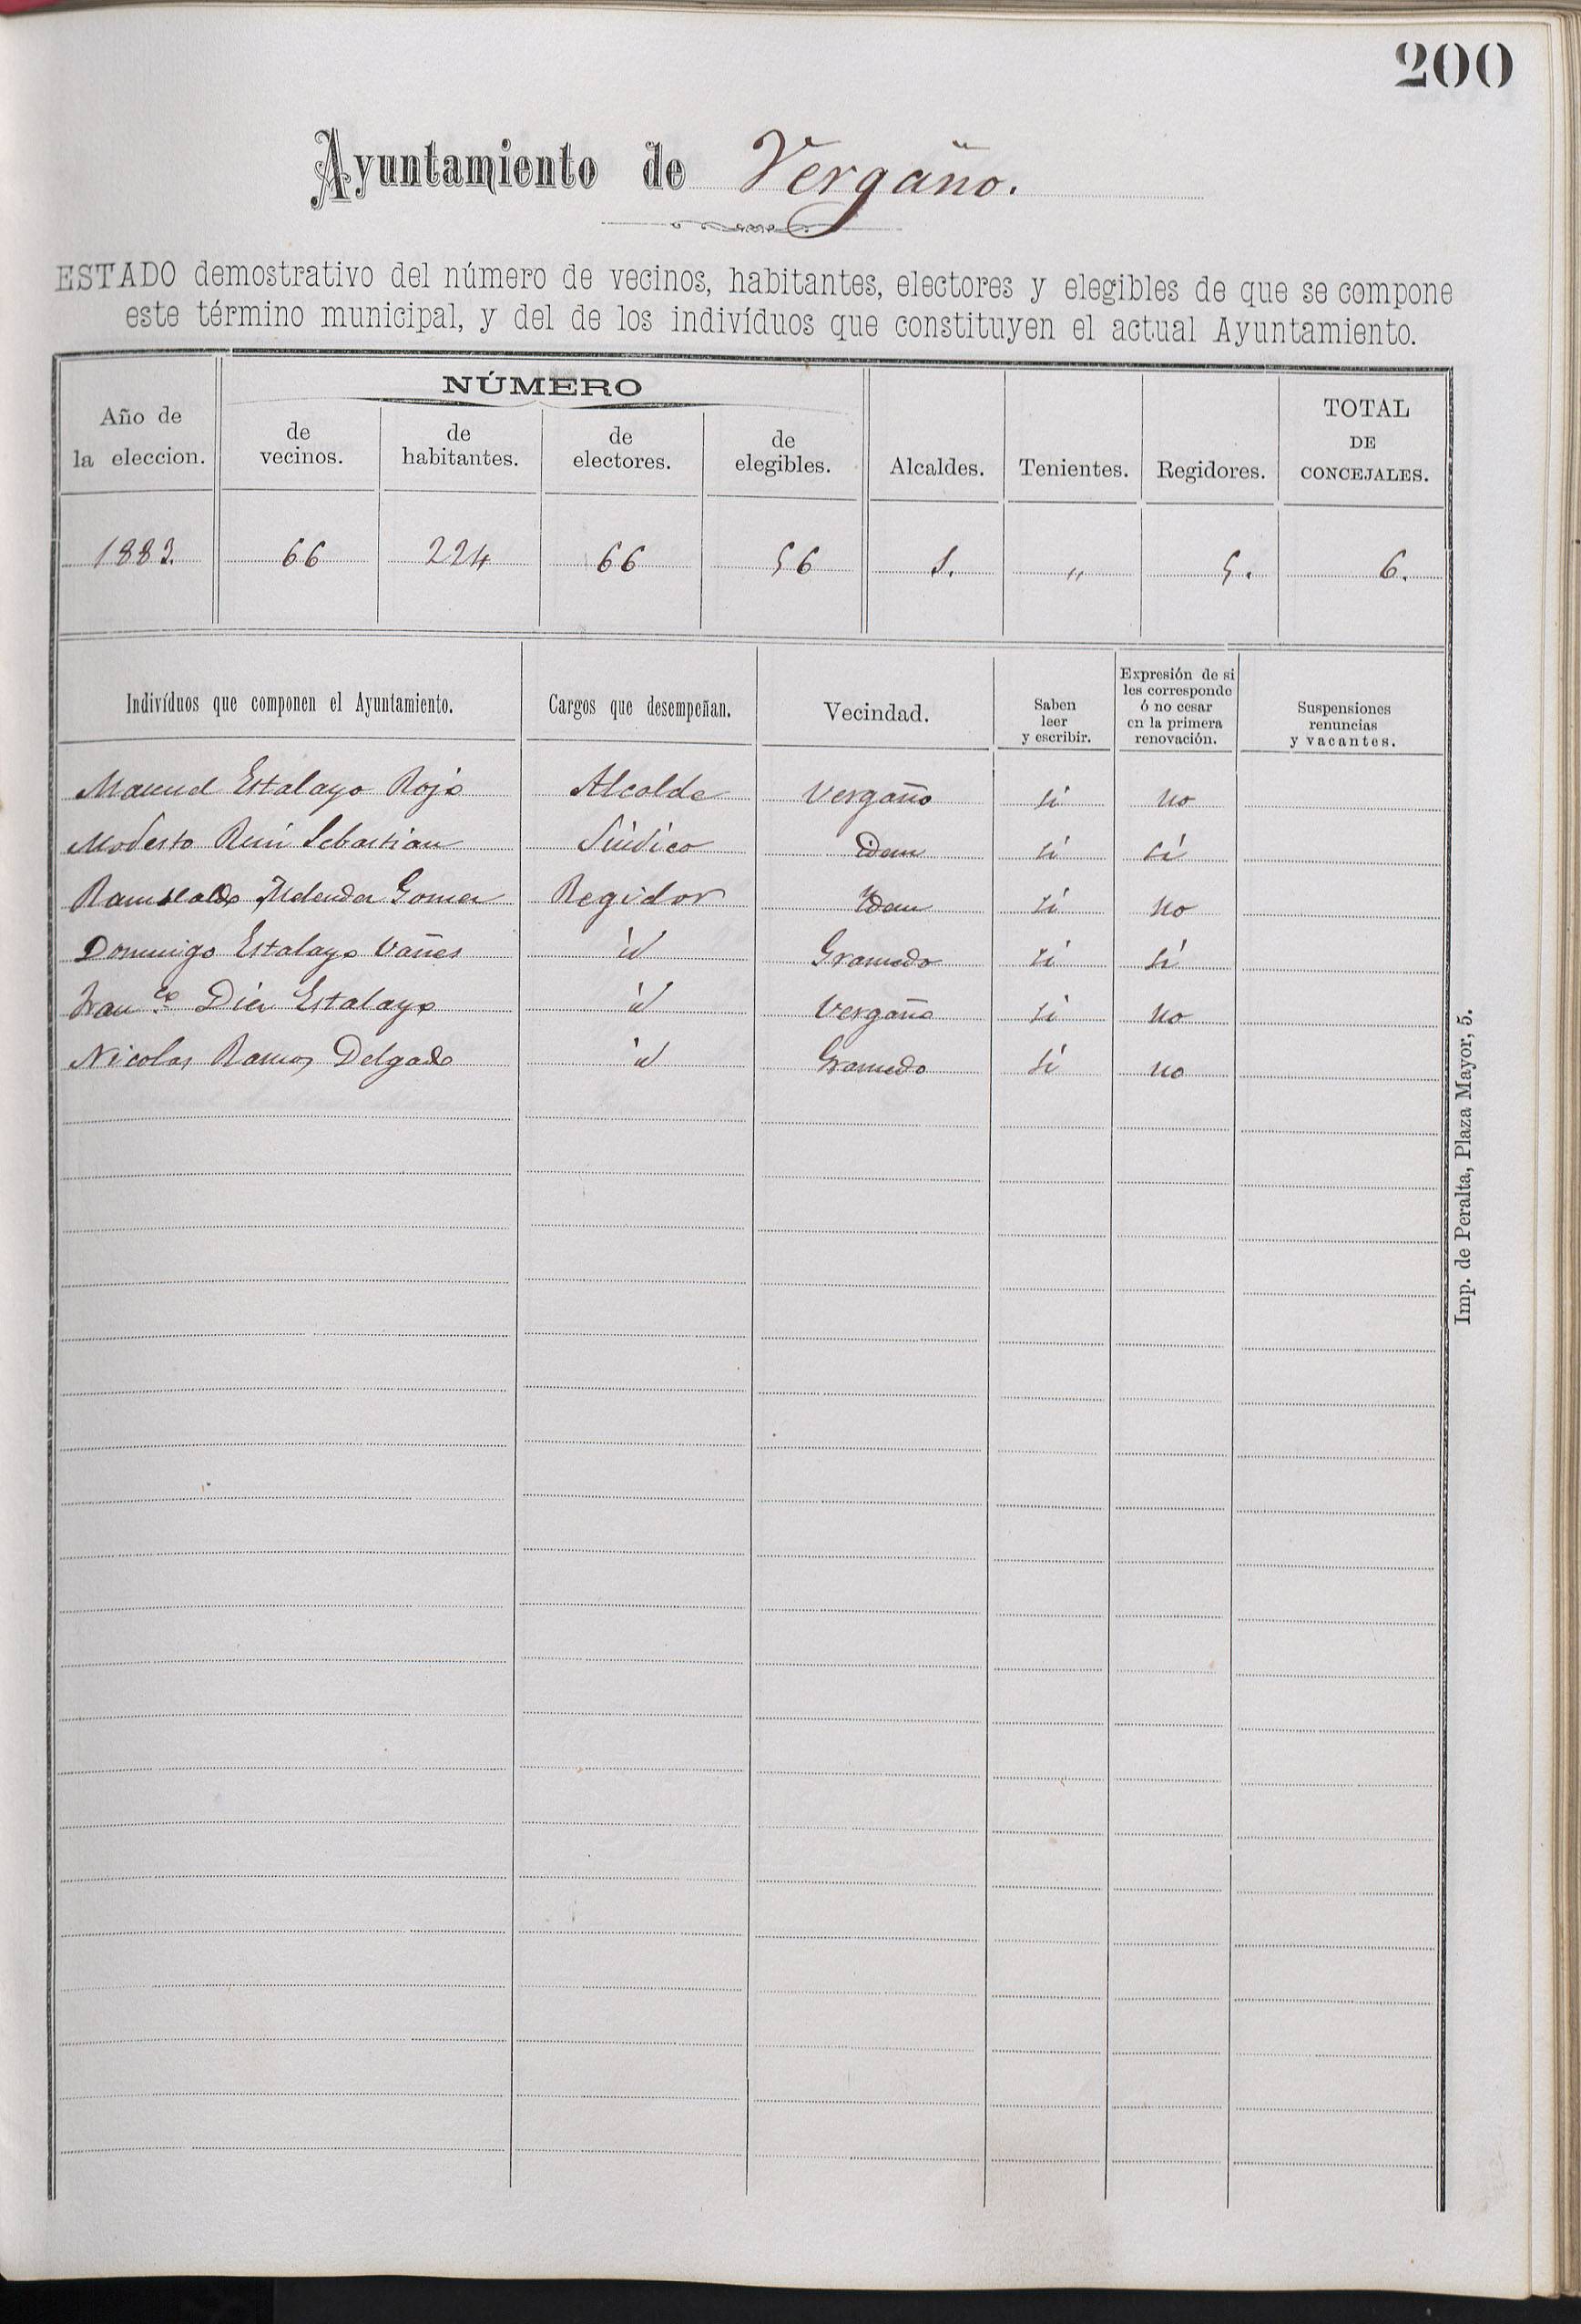 200
Ayuntamiento de Vergaño.
ESTADO demostrativo del número de vecinos, habitantes, electores y elegibles de que se compone
este término municipal, y del de los indivíduos que constituyen el actual Ayuntamiento.
Año de la eleccion.
NÚMERO
de vecinos.
de habitantes.
de electores.
de elegibles.
Alcaldes.
Tenientes.
Regidores.
TOTAL DE CONCEJALES.
1883. 66 224 66 56 1. " 5. 6.
Indivíduos que componen el Ayuntamiento.
Cargos que desempeñan.
Vecindad.
Saben leer y escribir.
Expresión de si les corresponde ó no cesar en la primera renovación.
Suspensiones renuncias y vacantes.
Manuel Estalayo Rojo Alcalde Vergaño si no
Modesto Ruiz Sebastian Síndico Idem si si
Gomez Regidor Idem si no
Domingo Estalayo Vañes id Gramedo si si
Franco Diez Estalayo id Vergaño si no
Nicolas Ramos Delgado id Gramedo si no
Imp. de Peralta, Plaza Mayor, 5.